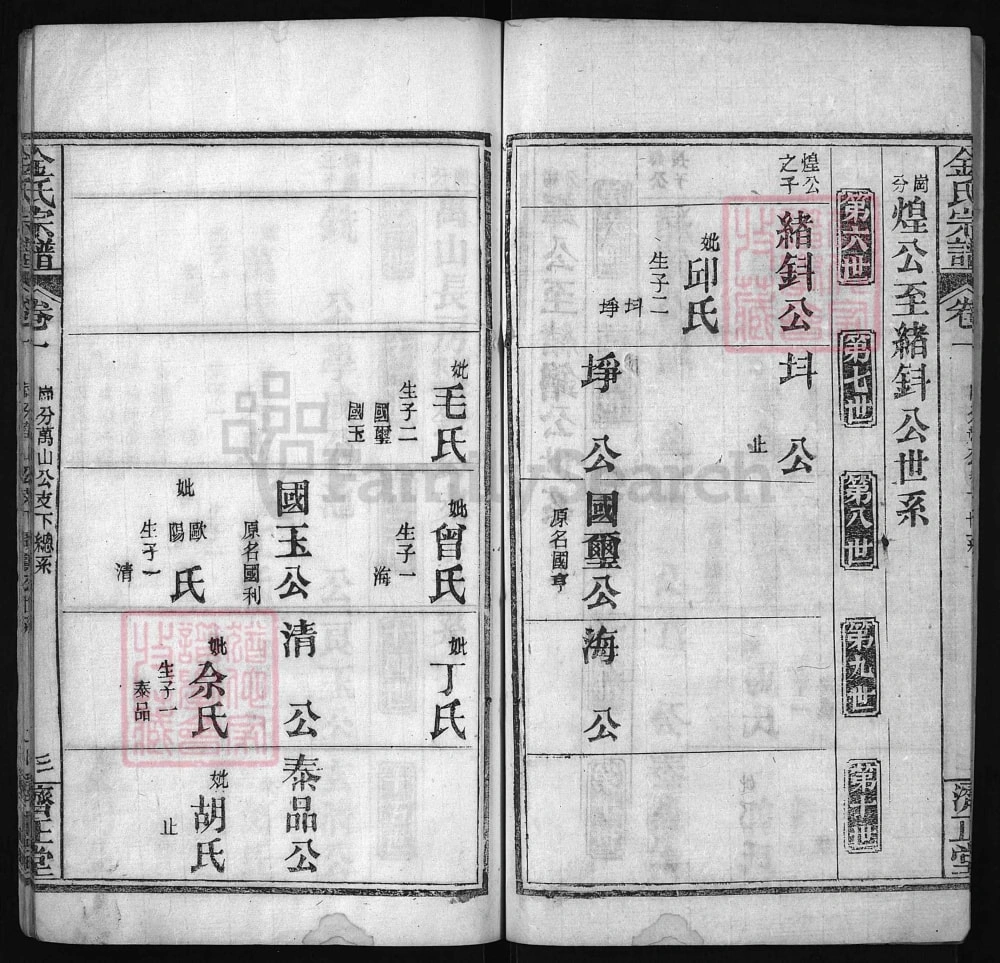 金氏宗譜
卷一
濟正堂
崗分
煌公至緒㪷公世系
第六世
第七世
第八世
第九世
第十世
煌公之子
緒㪷公
妣邱氏
生子二
埓
埩
公
止
埩公
國璽公
原名國亨
海公
妣毛氏
生子二
國璽
國玉
妣曾氏
生子一
海
妣丁氏
國玉公
原名國利
妣歐陽氏
生子一
清
清公
妣佘氏
生子一
泰品
泰品公
妣胡氏
止
金氏宗譜
卷一
崗分萬山公支下總系
三
濟正堂
FamilySearch